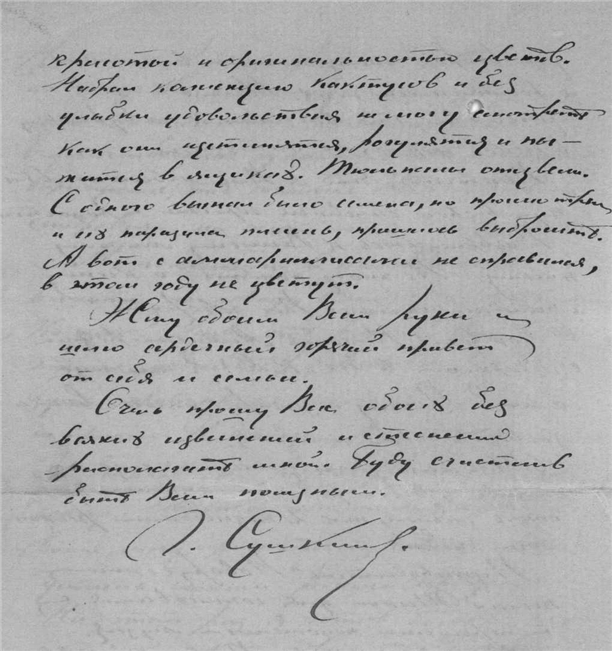 красотой и оригинальностью цветов.
Набрал коллекцию кактусов и без
улыбки удовольствия не могу смотреть
как они щетинятся, и пы-
жатся в ящиках. Тюльпаны отцвели.
С одного выпали было семена, но просмотрел
и их поразила плесень, пришлось выбросить.
А вот с аммариллисами не справился,
в этом году не цветут.
Жму обоим Вам руки и
шлю сердечный горячий привет
от себя и семьи.
Очень прошу Вас обоих без
всяких извинений и стеснений
располагать мной. Буду счастлив
быть Вам полезным.
Г. Сушкин.